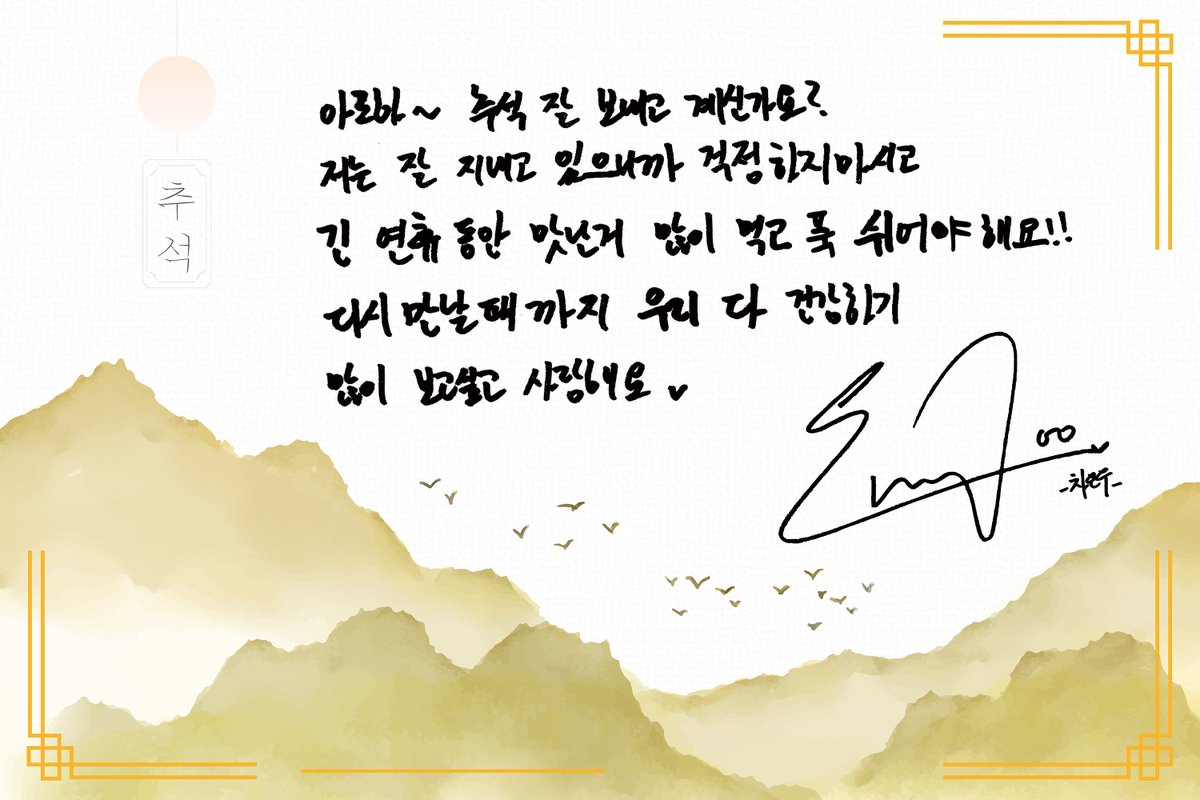 추석
아로하~ 추석 잘 보내고 계신가요?
저는 잘 지내고 있으니까 걱정하지마시고
긴 연휴 동안 맛난거 많이 먹고 푹 쉬어야해요!!
다시 만날때까지 우리 다 건강하기
많이 보고싶고 사랑해요
-차은우-